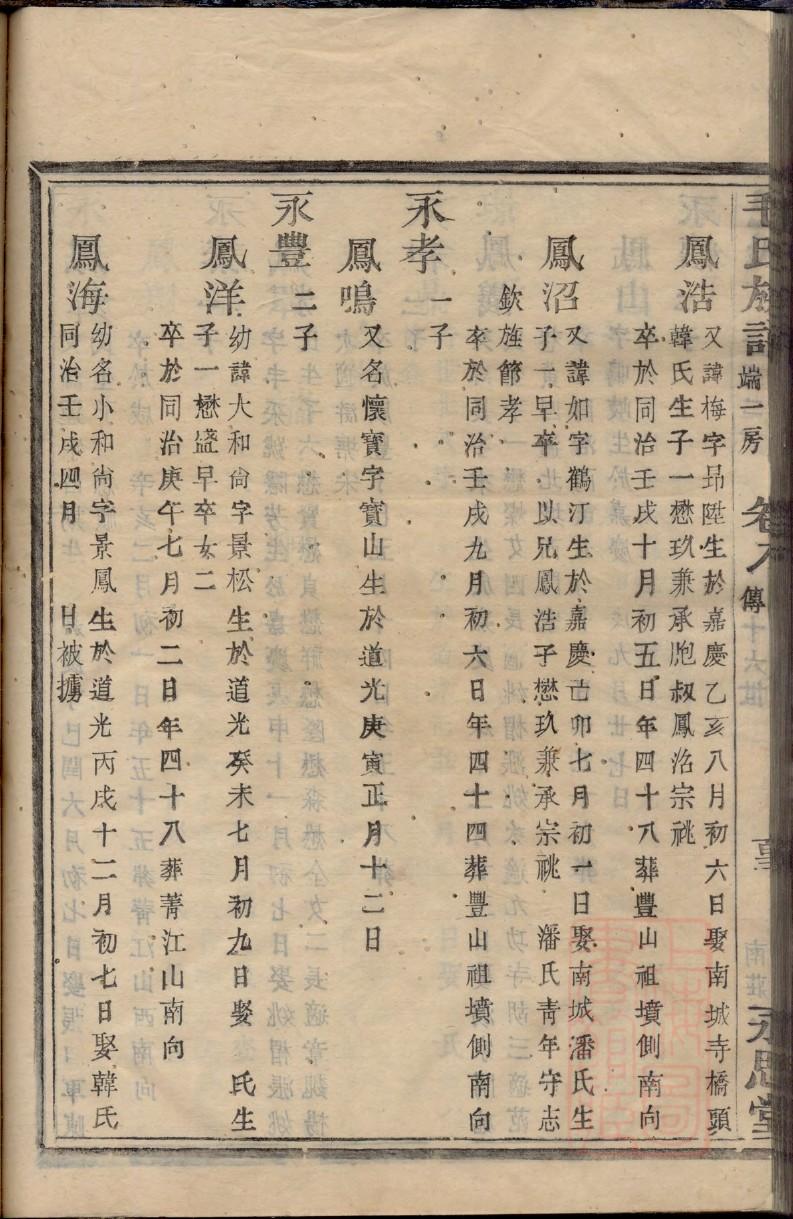 毛氏族譜 端一房 卷八 傳 十六世 南莊 永思堂
鳳浩 又諱梅字昻陞生於嘉慶乙亥八月初六日娶南城寺橋頭
韓氏生子一懋玖兼承胞叔鳳沼宗祧
卒於同治壬戌十月初五日年四十八葬豐山祖墳側南向
鳳沼 又諱如字鶴汀生於嘉慶己卯七月初一日娶南城潘氏生
子一早卒 以兄鳳浩子懋玖兼承宗祧 潘氏青年守志
欽旌節孝
卒於同治壬戌九月初六日年四十四葬豐山祖墳側南向
永孝 一子
鳳鳴 又名懷寶字寶山生於道光庚寅正月十二日
永豐 二子
鳳洋 幼諱大和尙字景松生於道光癸未七月初九日娶 氏生
子一懋盛早卒女二
卒於同治庚午七月初二日年四十八葬菁江山南向
鳳海 幼名小和尙字景鳳生於道光丙戌十二月初七日娶韓氏
同治壬戌四月 日被擄